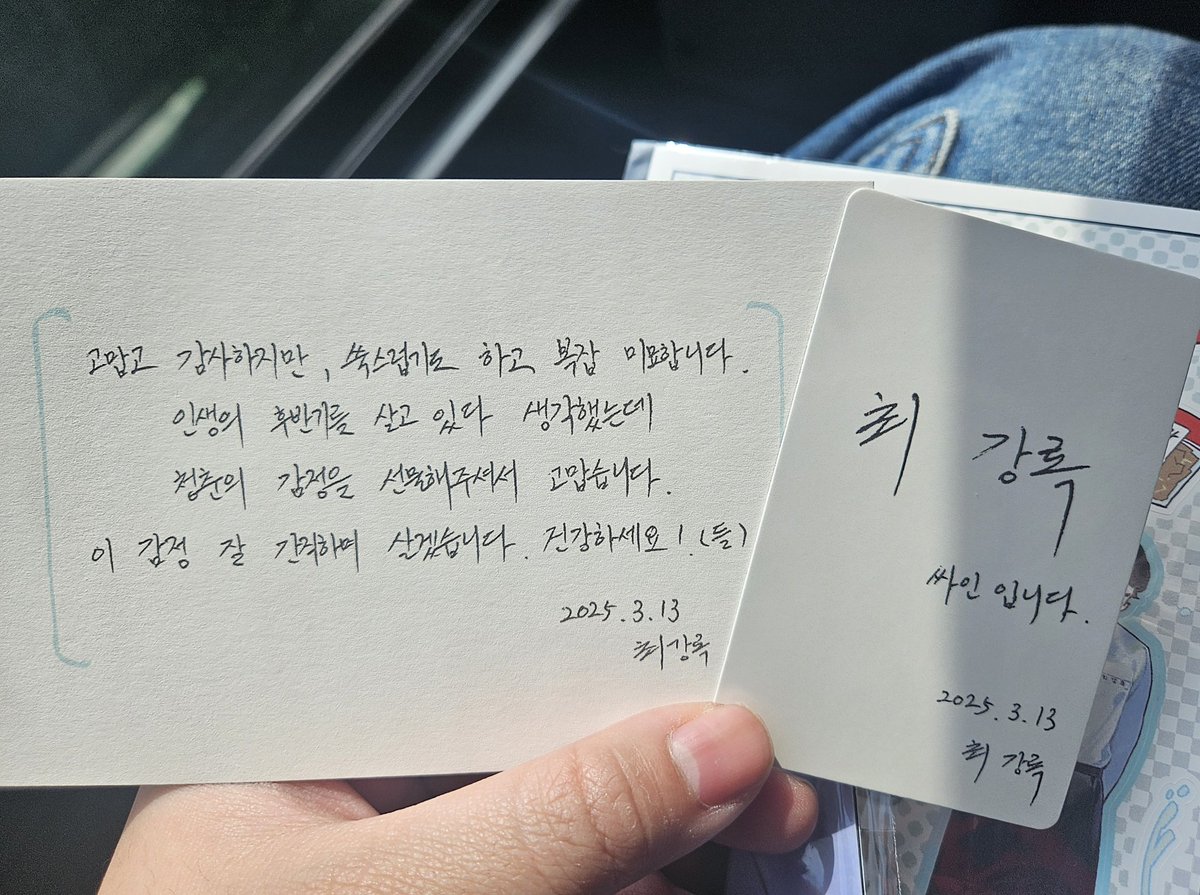 고맙고 감사하지만, 쑥스럽기도 하고 복잡 미묘합니다.
인생의 후반기를 살고 있다 생각했는데
청춘의 감정을 선물해주셔서 고맙습니다.
이 감정 잘 간직하며 살겠습니다. 건강하세요!.(들)
2025.3.13
최강록
최 강록
싸인 입니다.
2025.3.13
최 강록